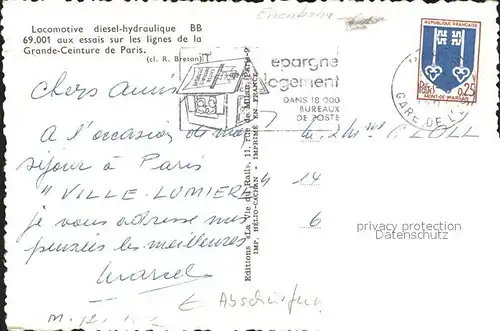 Locomotive diesel-hydraulique BB
69.001 aux essais sur les lignes de la
Grande-Ceinture de Paris.
(cl. R. Breton)
Eisenbahn
Chers amis
A l'occasion de mon
séjour à Paris
"VILLE-LUMIERE"
je vous adresse mes
pensées les meilleures
Marcel
épargne
logement
DANS 18 000
BUREAUX
DE POSTE
Editions «La Vie du Rail», 11, rue de Milan, Paris-9
IMP. HÉLIO-CACHAN - IMPRIMÉ EN FRANCE
REPUBLIQUE FRANÇAISE
POSTES
0,25
MONT-DE-MARSAN
GARE DE L'E
14
6
privacy protection
Datenschutz